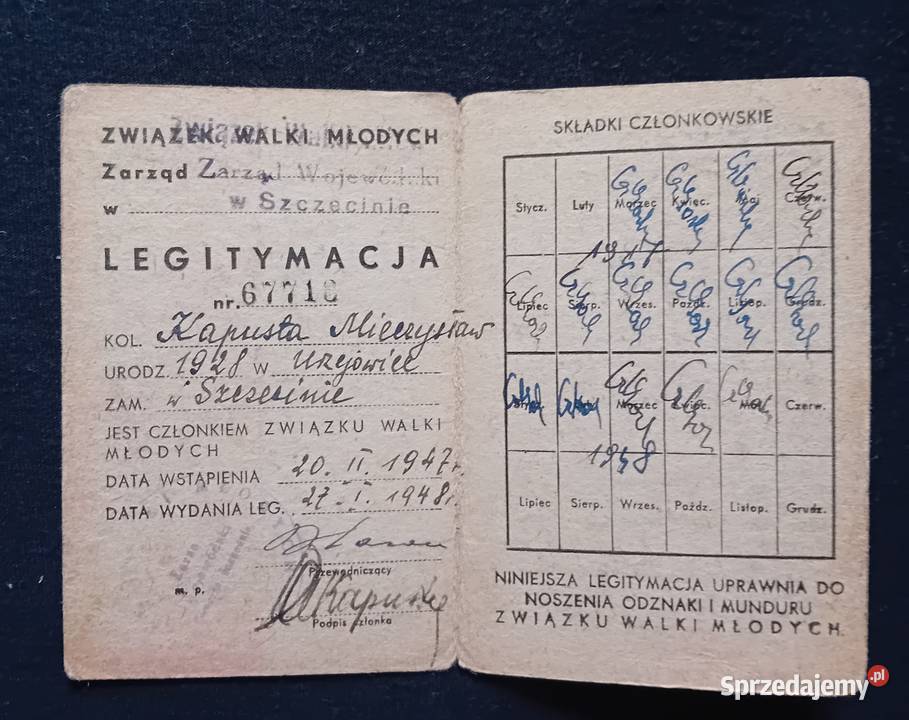 ZWIĄZEK WALKI MŁODYCH
Zarząd Zarząd Wojewódzki
w w Szczecinie
LEGITYMACJA
nr. 67718
KOL. Kapusta Mieczysław
URODZ. 1928 W Urzejowice
ZAM. w Szczecinie
JEST CZŁONKIEM ZWIĄZKU WALKI
MŁODYCH
DATA WSTĄPIENIA 20. II. 1947 r.
DATA WYDANIA LEG. 27. I. 1948 r.
Przewodniczący
m. p.
MKapusta
Podpis członka
SKŁADKI CZŁONKOWSKIE
Stycz. Luty Marzec Kwiec. Maj Czerw.
1947
Lipiec Sierp. Wrzes. Paźdz. Listop. Grudz.
Marzec Kwiec. Maj Czerw.
1948
Lipiec Sierp. Wrzes. Paźdz. Listop. Grudz.
NINIEJSZA LEGITYMACJA UPRAWNIA DO
NOSZENIA ODZNAKI I MUNDURU
ZWIĄZKU WALKI MŁODYCH.
Sprzedajemy.pl